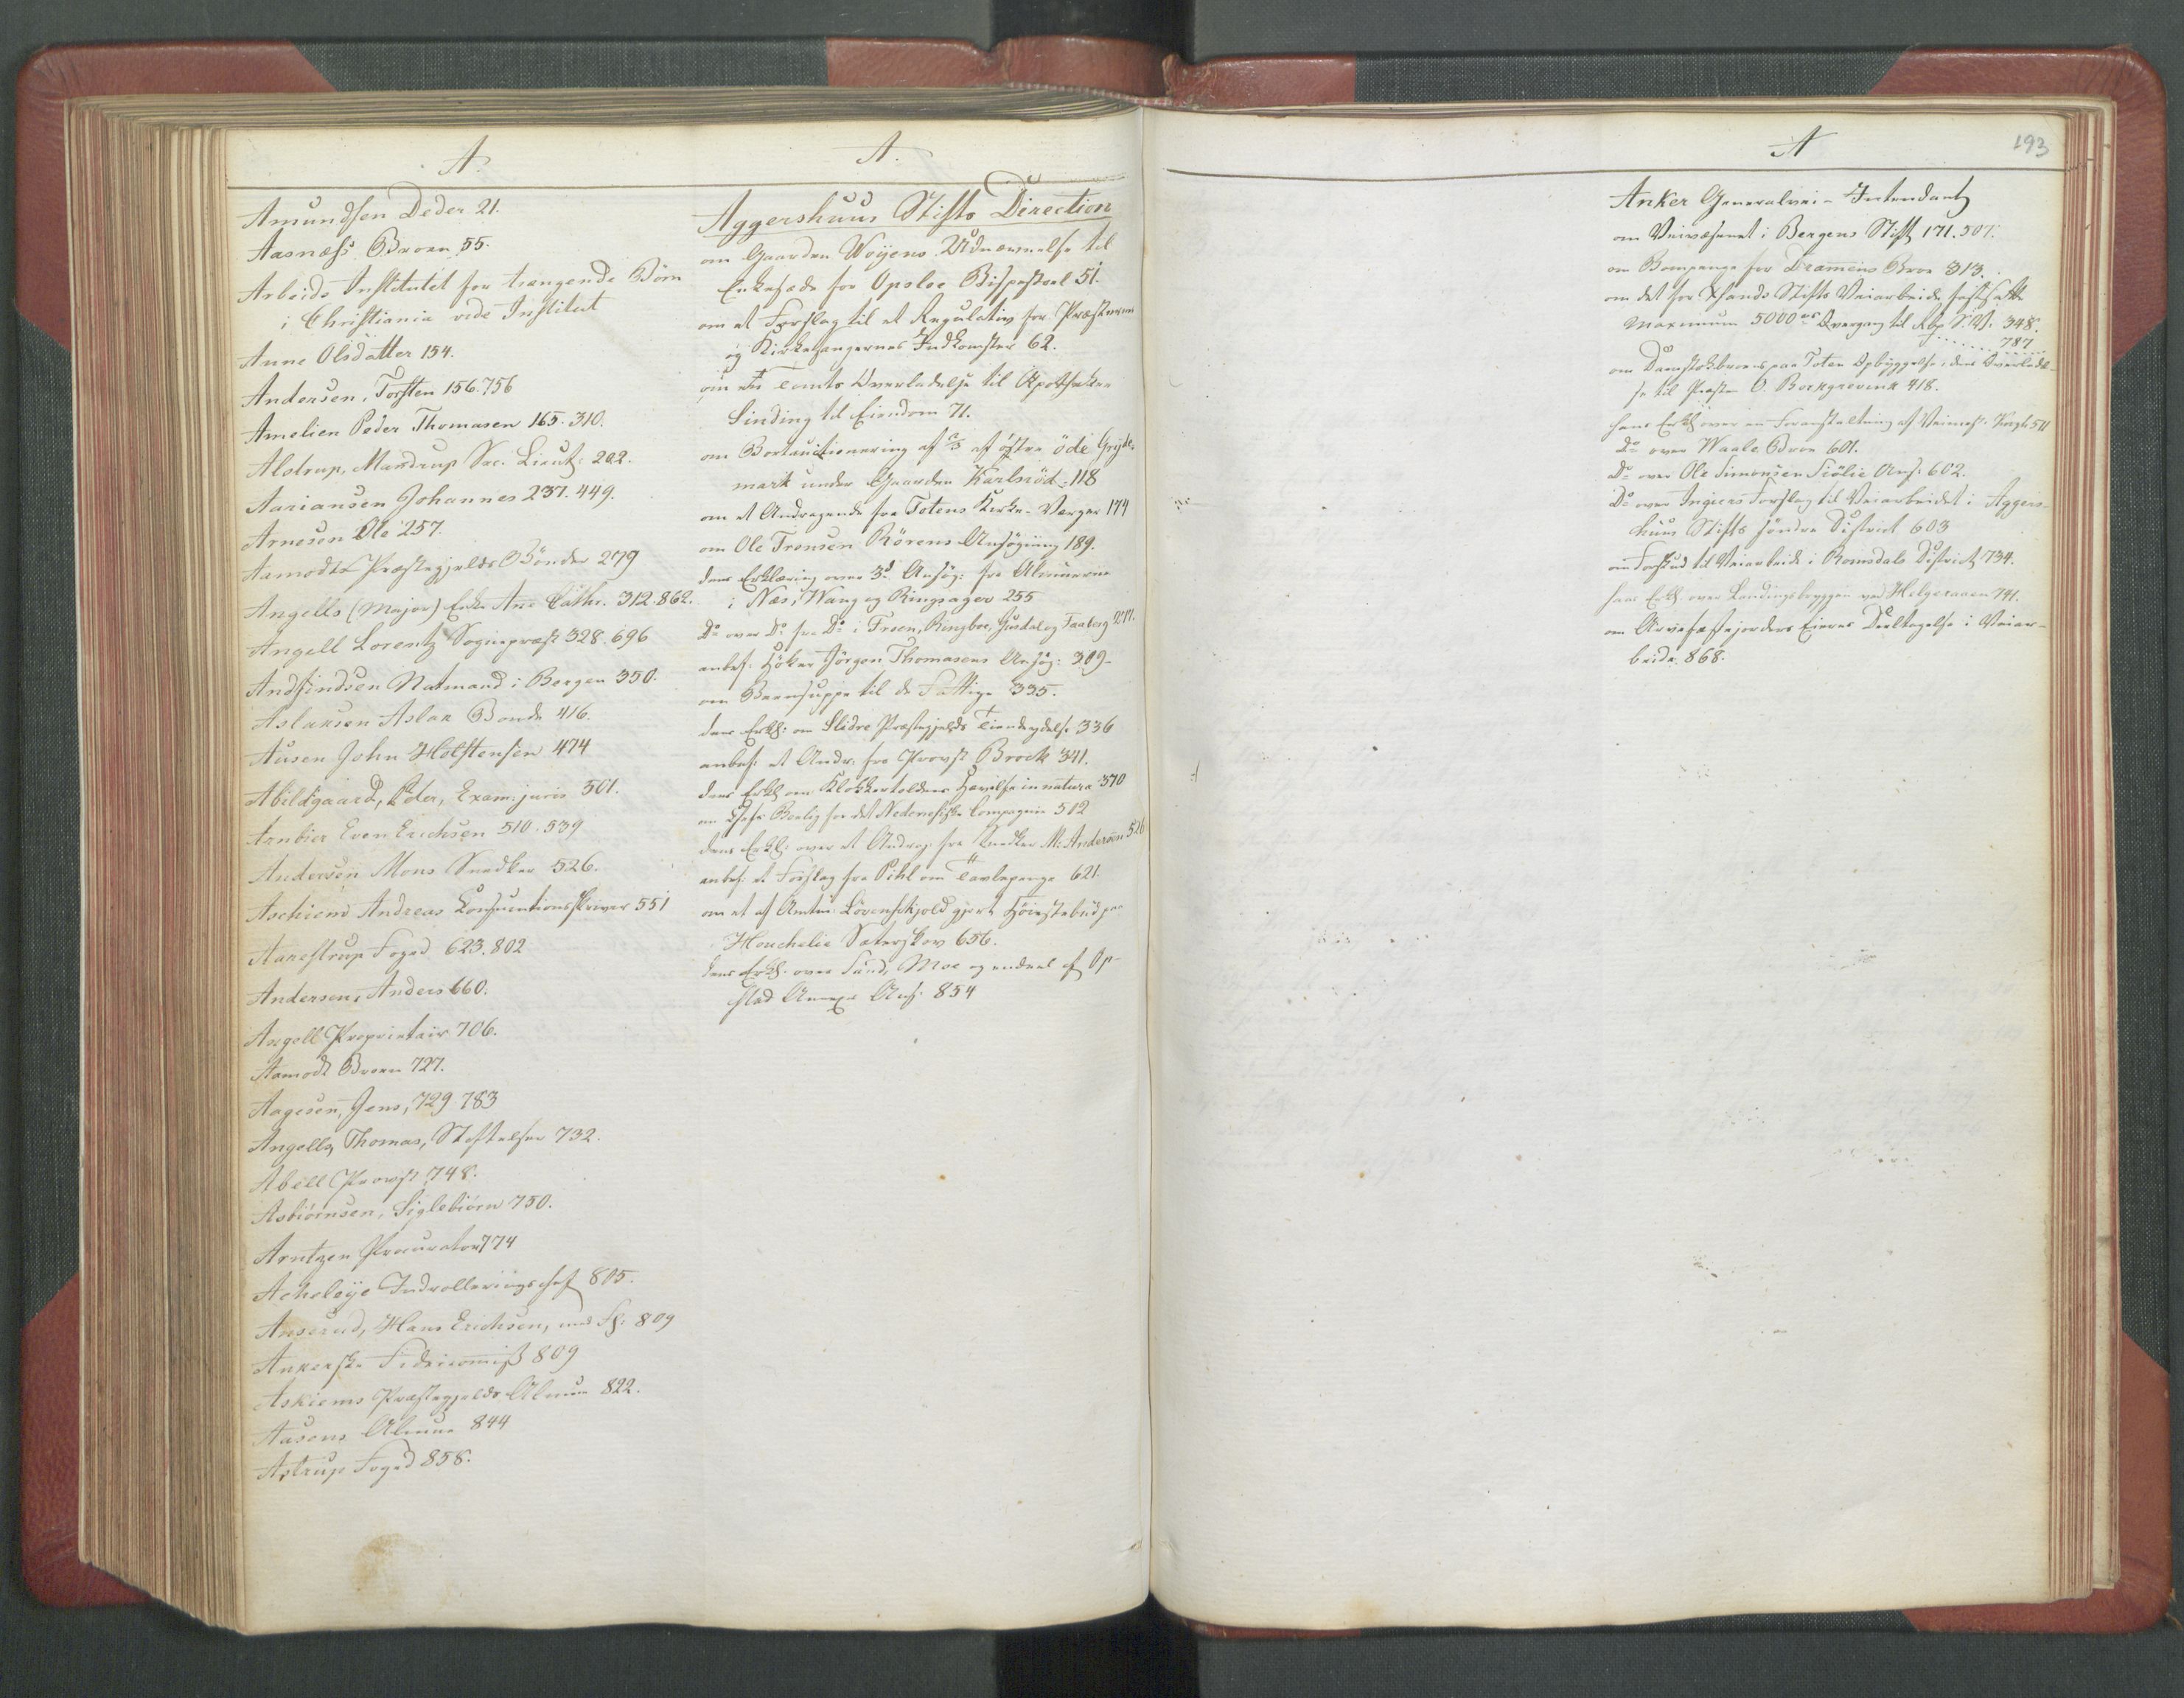 A.
Amundsen Peder 21.
Aasnæss Broen 55.
Arbeids Institutet for trængende Børn
i Christiania vide Institut
Anne Olsdatter 154.
Andersen, Torsten 156.756
Amelien Peder Thomasen 165.310.
Alstrup, Mandrup Sec. Lieut: 202.
Aariansen Johannes 237.449.
Arnesen Ole 257.
Aamodts Præstegjelds Bønder 279
Angells (Major) Enke Ane Cathr. 312.862.
Angell Lorentz Sognepræst 328.696
Andfindsen Natmand i Bergen 350.
Aslaksen Aslak Bonde 416.
Ausen John Holstensen 474
Abildgaard, Peder, Exam: juris 501.
Arnbier Even Erichsen 510.539
Andersen Mons Snedker 526.
Aschiem Andreas Consumtionsskriver 551
Aarestrup Foged 623.802
Andersen, Anders 660.
Angell Proprietair 706.
Aamodt Broen 727.
Aagesen, Jens, 729 783
Angells, Thomas, Stiftelser 732.
Abell Provst 748.
Asbiørnsen, Siglebiørn 750.
Arntzen Procurator 774
Acheleye Indrolleringschef 805.
Anserud, Hans Erichsen, med Fl: 809
Ankerske Fideicommiss 809
Askiems Præstegjelds Almue 822.
Aasens Almue 844
Astrup Foged 858.
A.
Aggershuus Stifts Direction
om Gaarden Woyens Udnævnelse til
Enkesæde for Opsloe Bispestoel 51.
om et Forslag til et Regulativ for Præsternes
og Kirkesangernes Indkomster 62.
om en Tomts Overladelse til Apotheker
Sinding til Eiendom 71.
om Bortauctionering af af østre øde
mark under Gaarden Karlsrød 118
om et Andragende fra Totens Kirke-Værger 174
om Ole Trensen Rørens Ansøgning 189.
dens Erklæring over 3de Ansøg: fra Almuerne
i Næs, Wang og Ringsager 255
Do over Do fra Do i Froen, Ringboe, Gusdal og Faaberg 271.
anbef: Høker Jørgen Thomasens Ansøg: 309.
om Beensuppe til de Fattige 335.
dens Erkl: om Slidre Præstegjelds Tiendeydelse 336
anbef: et Andr: fra Provst Brock 341.
dens Erkl om Klokkertoldens Hævelse in natura 370
om Bolig for det Nedenesiske Compagnie 502
dens Erkl: over et Andrag: fra Snedker M: Andersen 526
anbef: et Forslag fra Pihl om Tavlepenge 621.
om et af Amtm: Løvenskjold gjort Høiestebud paa
Houchelie Sæterskov 656.
dens Erkl: over Sund, Moe og endeel af Op-
stad Annexe Ans: 854
A
193
Anker Generalvei-Intendant
om Veivæsenet i Bergens Stift 171.507.
om Bompenge for Drammens Broe 313.
om det for Xsands Stifts Veiarbeide fastsatte
Maximum 5000 Overgang til Rbp S.V. 348.
787
om Damstokbroens paa Toten Opbyggelse, dens Overladel-
se til Præsten O. Borchgrevink 418.
hans Erkl over en Foranstaltning af Veimest: Krogh 511
Do over Waale Broe 601.
Do over Ole Simonsen Siølie Ans: 602.
Do over Ingiers Forslag til Veiarbeidet i Aggers-
huus Stifts søndre District 603
om Forskud til Veiarbeide i Romsdals District 734.
hans Erkl: over Landingsbryggen ved Helgeraaen 741.
om Arvefæstejorders Eieres Deeltagelse i Veiar-
beide. 868.